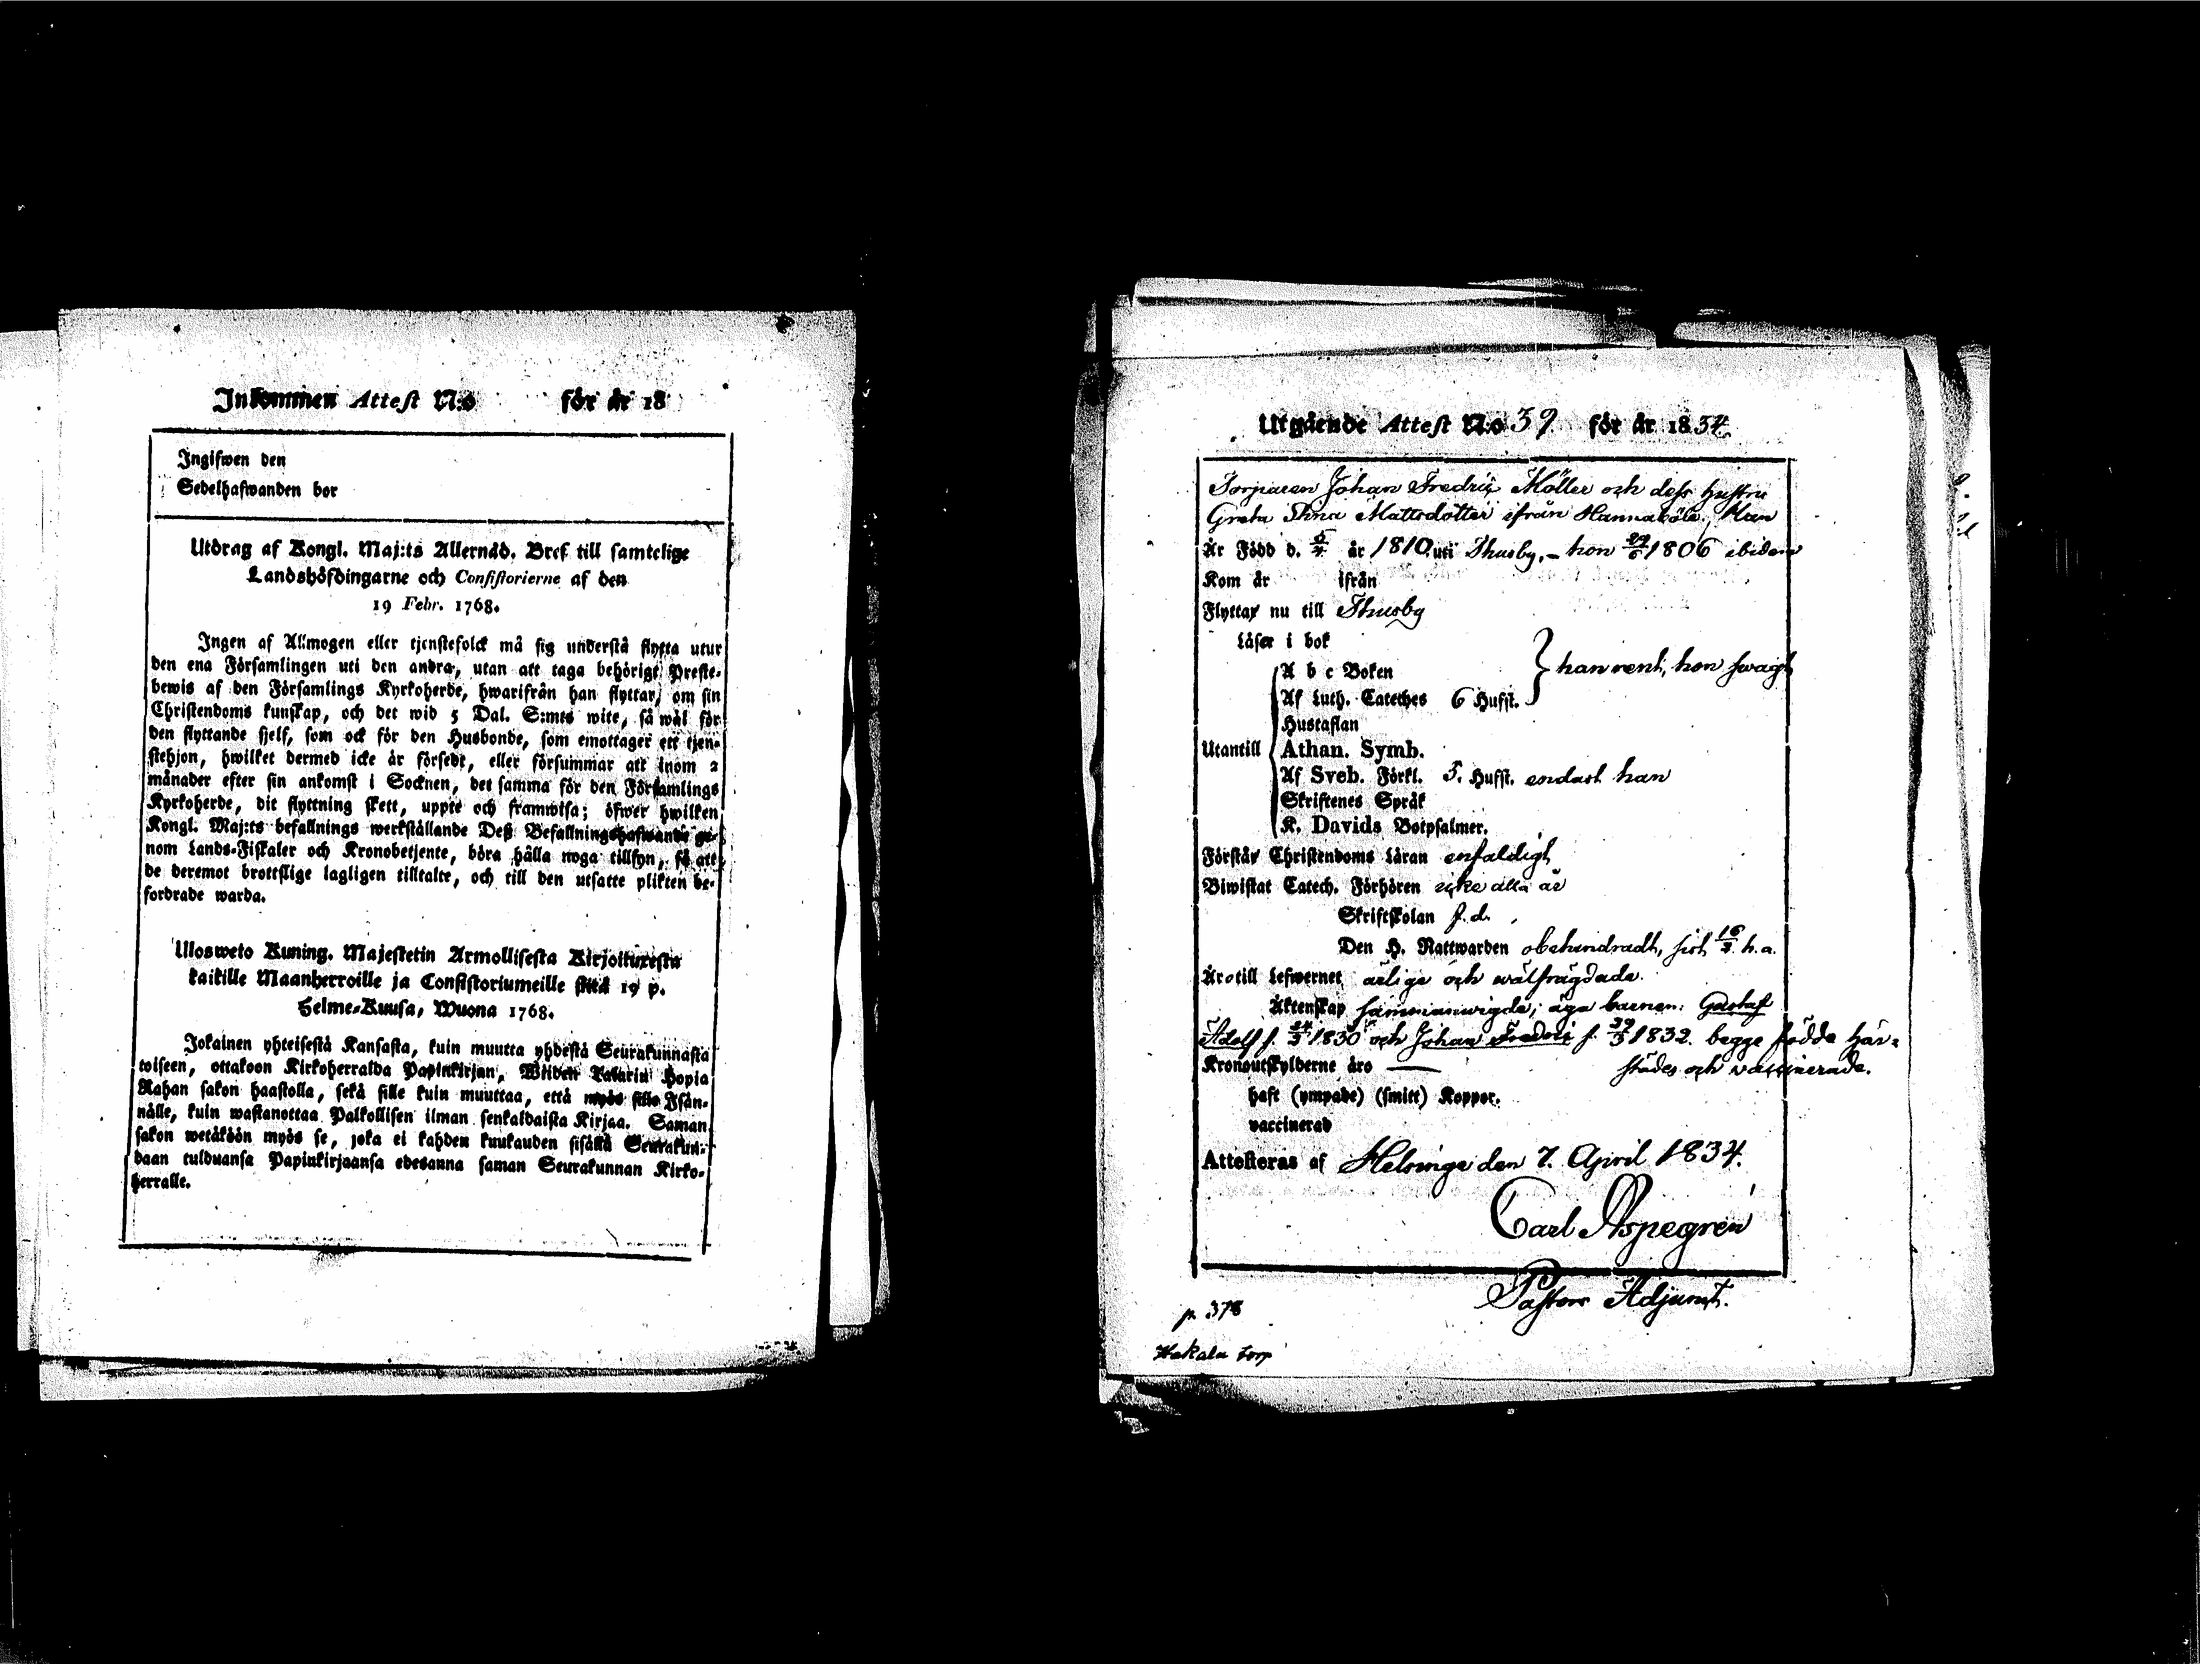 Inkommen Attest N:o för år 18
Ingifwen den
Sedelhafwanden bor
Utdrag af Kongl. Maj:ts Allernåd. Bref till samtelige
Landshöfdingarne och Consistorierne af den
19 Febr. 1768.
Ingen af Allmogen eller tjenstefolck må sig understå flytta utur
den ena Församlingen uti den andra, utan att taga behörigt Preste-
bewis af den Församlings Kyrkoherde, hwarifrån han flyttar, om sin
Christendoms kunskap, och det wid 5 Dal. S:mts wite, så wäl för
den flyttande sjelf, som ock för den Husbonde, som emottager ett tjen-
stehjon, hwilket dermed icke är försedt, eller försummar att inom 2
månader efter sin ankomst i Socknen, det samma för den Församlings
Kyrkoherde, dit flyttning skett, uppte och framwisa; öfwer hwilken
Kongl. Maj:ts befallnings werkställande Deß Befallningshafwande ge-
nom Lands-Fiskaler och Kronobetjente, böra hålla noga tillsyn, så att
de deremot brottslige lagligen tilltalte, och till den utsatte plikten be-
fordrade warda.
Ulosweto Kuning. Majestetin Armollisesta Kirjoituxesta
kaikille Maanherroille ja Consistoriumeille siitä 19 p.
Helme-Kuusa, Wuona 1768.
Jokainen yhteisestä Kansasta, kuin muutta yhdestä Seurakunnasta
toiseen, ottakoon Kirkoherralda Papinkirjan, Wiiden Talarin Hopia
Rahan sakon haastolla, sekä sille kuin muuttaa, että myös sille Isän-
nälle, kuin wastanottaa Palkollisen ilman senkaldaista Kirjaa. Saman
sakon wetäköön myös se, joka ei kahden kuukauden sisällä Seurakun-
daan tulduansa Papinkirjaansa edesanna saman Seurakunnan Kirko-
herralle.
Utgående Attest N:o 39 för år 1834.
Torparen Johan Fredric Möller och dess hustru
Greta Stina Mattsdotter ifrån Hannaböle, Han
Är Född d. 5/4 år 1810 uti Thusby. - hon 29/6 1806 ibidem
Kom år ifrån
Flyttar nu till Thusby
Läser i bok
A b c Boken
han rent, hon swagt
Af Luth. Cateches 6 Hufst.
Hustaflan
Utantill Athan. Symb.
Af Sveb. Förkl. 5. Hufst. endast han
Skriftenes Språk
K. Davids Botpsalmer.
Förstår Christendoms Läran enfaldigt
Biwistat Catech. Förhören icke alla år
Skriftskolan f. d.
Den H. Nattwarden obehindradt, sist 16/3 h. a.
Äro till Lefwernet ärlige och wälfrägdade.
Äktenskap sammanwigde; äga barnen: Gustaf
Adolf f. 24/3 1830 och Johan Fredric f. 29/3 1832. begge födde här-
städes och vaccinerade.
Kronoutskylderne äro —
haft (ympade) (smitt) Koppor.
vaccinerad
Attesteras af Helsinge den 7. April 1834.
Carl Aspegren
Pastors Adjunct.
p. 378
Hakala torp